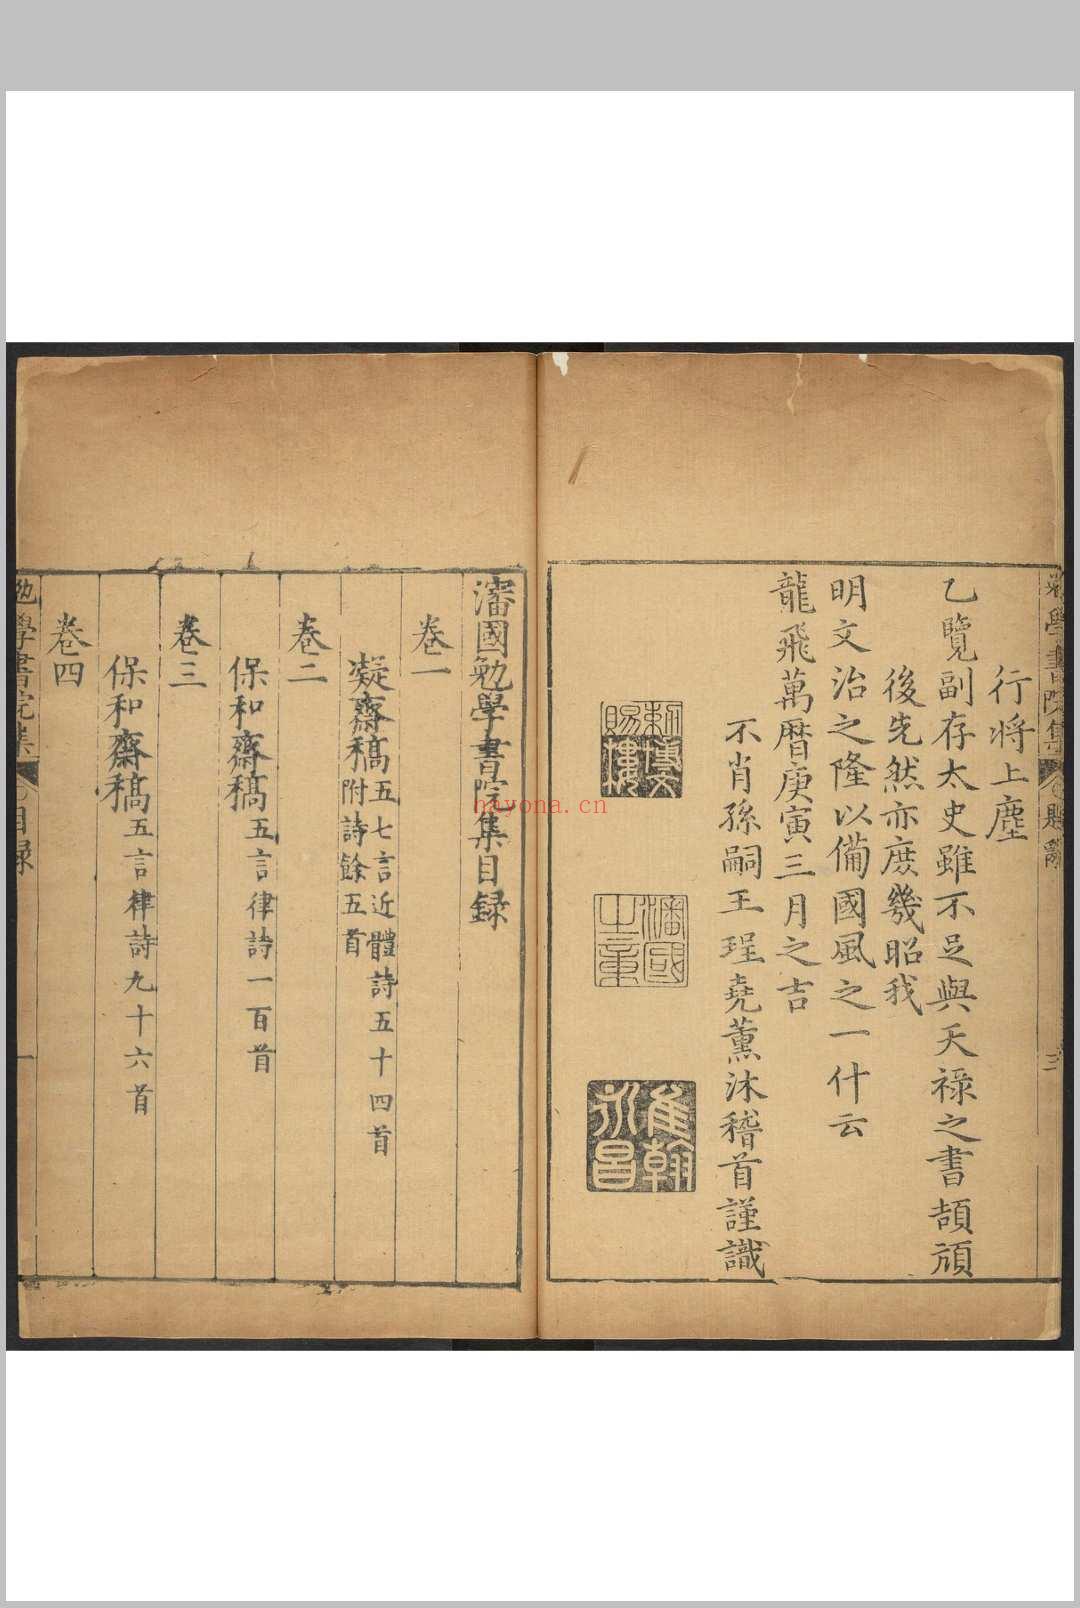 行將上塵
乙覽副存太史雖不足與天祿之書頡頏
後先然亦庶幾昭我
明文治之隆以備國風之一什云
龍飛萬曆庚寅三月之吉
不肖孫嗣王珵堯薰沐稽首謹識
瀋國之章
瀋國勉學書院集目録
卷一
凝齋稿五七言近體詩五十四首
附詩餘五首
卷二
保和齋稿五言律詩一百首
卷三
保和齋稿五言律詩九十六首
卷四
勉學書院集
目録
一
nayona.cn